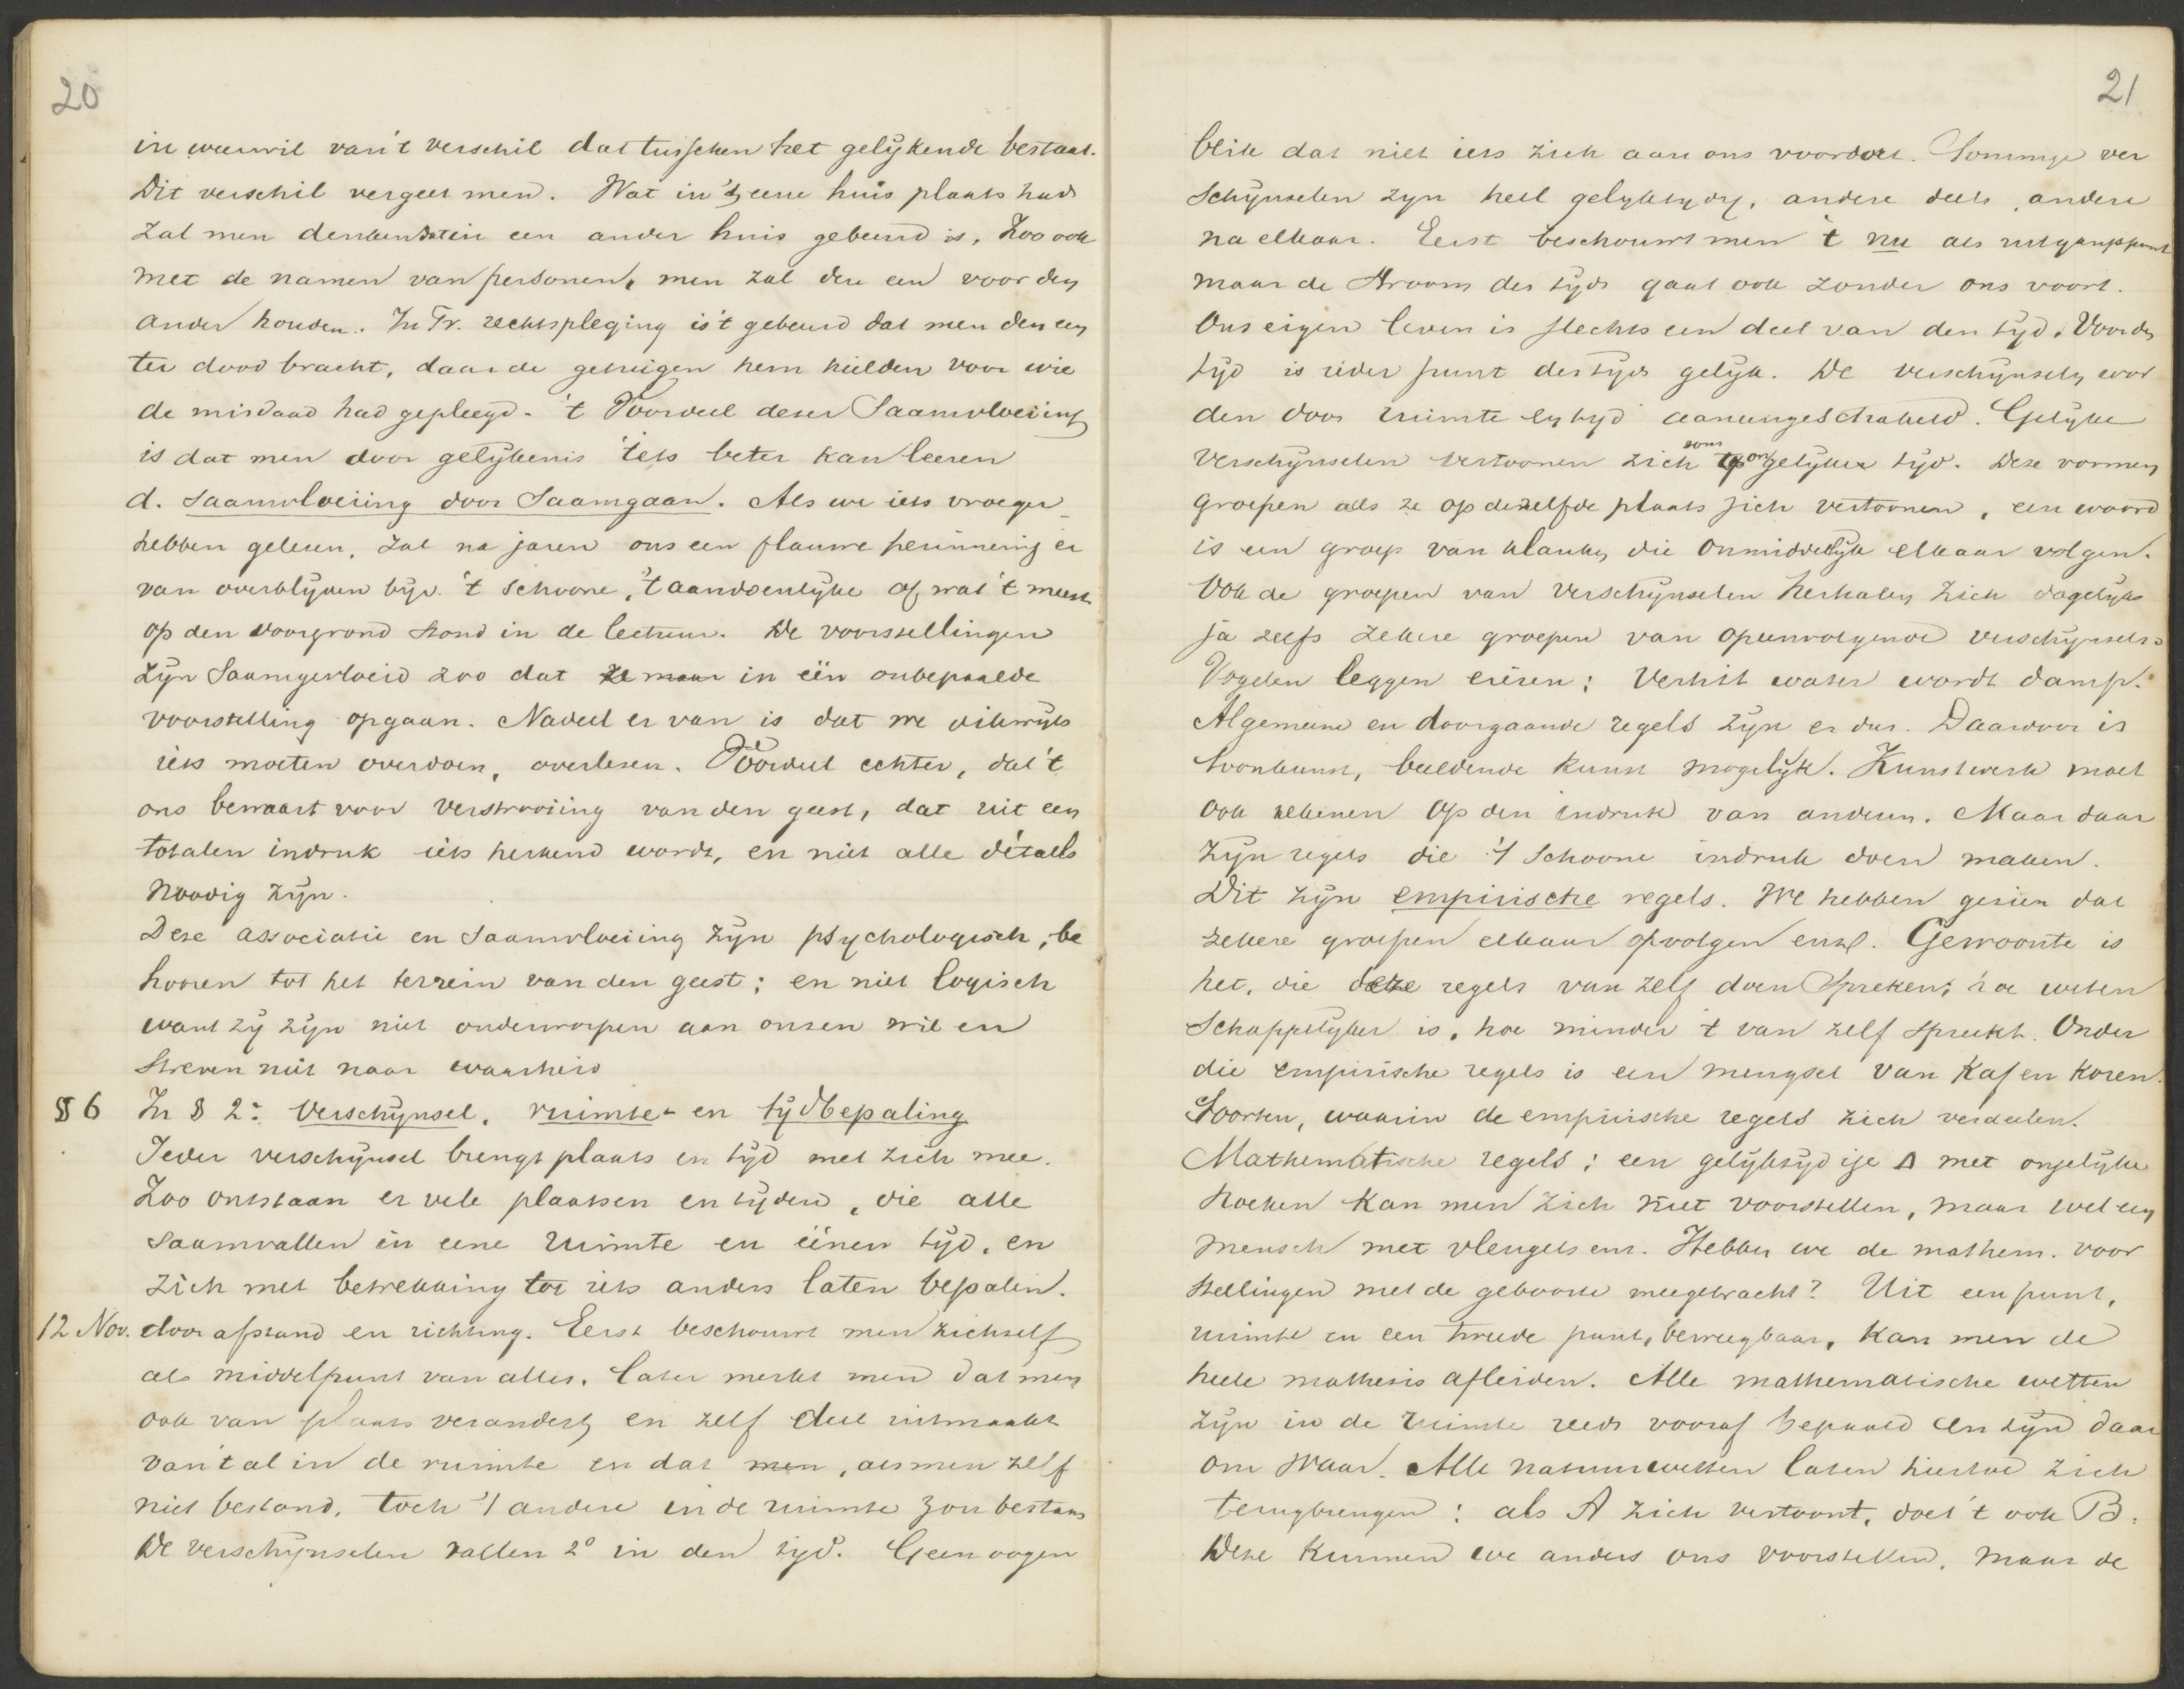 20
in weerwil van 't verschil dat tusschen het gelijkende bestaat.
Dit verschil vergeet men. Wat in 't eene huis plaats had
zal men denken dat in een ander huis gebeurd is. Zoo ook
met de namen van personen, men zal den een voor den
ander houden. In Fr. rechtspleging is 't gebeurd dat men den een
ter dood bracht, daar de getuigen hem hielden voor wie
de misdaad had gepleegd. 't Voordeel dezer Saamvloeiing
is dat men door gelijkenis iets beter kan leeren
d. Saamvloeiing door Saamgaan. Als we iets vroeger
hebben gelezen, zal na jaren ons een flauwe herinnering er
van overblijven bijv. 't schoone, 't aandoenlijke of wat 't meest
op den voorgrond stond in de lectuur. De voorstellingen
zijn Saamgevloeid zoo dat ze maar in één onbepaalde
voorstelling opgaan. Nadeel er van is dat we dikwijls
iets moeten overdoen, overlezen. Voordeel echter, dat 't
ons bewaart voor verstrooiing van den geest, dat uit een
totalen indruk iets herkend wordt, en niet alle détails
noodig zijn.
Deze associatie en Saamvloeiing zijn psychologisch, be
hooren tot het terrein van den geest; en niet logisch
want zij zijn niet onderworpen aan onzen wil en
streven niet naar waarheid
§ 6 In § 2: Verschijnsel, ruimte- en tijdbepaling
Ieder verschijnsel brengt plaats en tijd met zich mee.
Zoo ontstaan er vele plaatsen en tijden, die alle
saamvallen in eene ruimte en éénen tijd, en
zich met betrekking tot iets anders laten bepalen.
12 Nov. door afstand en richting. Eerst beschouwt men zichzelf
als middelpunt van alles. Later merkt men dat men
ook van plaats verandert, en zelf deel uitmaakt
van 't al in de ruimte en dat men, als men zelf
niet bestond, toch 't andere in de ruimte zou bestaan
De verschijnselen vallen 2° in den tijd. Geen oogen
21
blik dat niet iets zich aan ons voordoet. Sommige ver
schijnselen zijn heel gelijktijdig, andere deels, andere
na elkaar. Eerst beschouwt men 't nu als uitgangspunt
maar de stroom des tijds gaat ook zonder ons voort.
Ons eigen leven is slechts een deel van den tijd. Voor den
tijd is ieder punt des tijds gelijk. De verschijnselen wor
den door ruimte en tijd aaneengeschakeld. Gelijke
verschijnselen vertoonen zich soms op ongelijken tijd. Deze vormen
groepen als ze op dezelfde plaats zich vertoonen, een woord
is een groep van klanken die onmiddelijk elkaar volgen.
Ook de groepen van verschijnselen herhalen zich dagelijks
ja zelfs zekere groepen van opeenvolgende verschijnsels:
Vogelen leggen eieren: Verhit water wordt damp.
Algemeene en doorgaande regels zijn er dus. Daardoor is
toonkunst, beeldende kunst mogelijk. Kunstwerk moet
ook rekenen op den indruk van anderen. Maar daar
zijn regels die 't schoone indruk doen maken.
Dit zijn empirische regels. We hebben gezien dat
zekere groepen elkaar opvolgen enz. Gewoonte is
het, die deze regels van zelf doen spreken; hoe weten
schappelijker is, hoe minder 't van zelf spreekt. Onder
die empirische regels is een mengsel van kaf en koren.
Soorten, waarin de empirische regels zich verdeelen.
Mathematische regels: een gelijkzijdige Δ met ongelijke
hoeken kan men zich niet voorstellen, maar wel een
mensch met vleugels enz. Hebben we de mathem. voor
stellingen met de geboorte meegebracht? Uit een punt,
ruimte en een tweede punt, beweegbaar, kan men de
heele mathesis afleiden. Alle mathematische wetten
zijn in de ruimte reeds vooraf bepaald en zijn daar
om waar. Alle natuurwetten laten hiertoe zich
terugbrengen: als A zich vertoont, doet 't ook B.
Deze kunnen we anders ons voorstellen, maar de